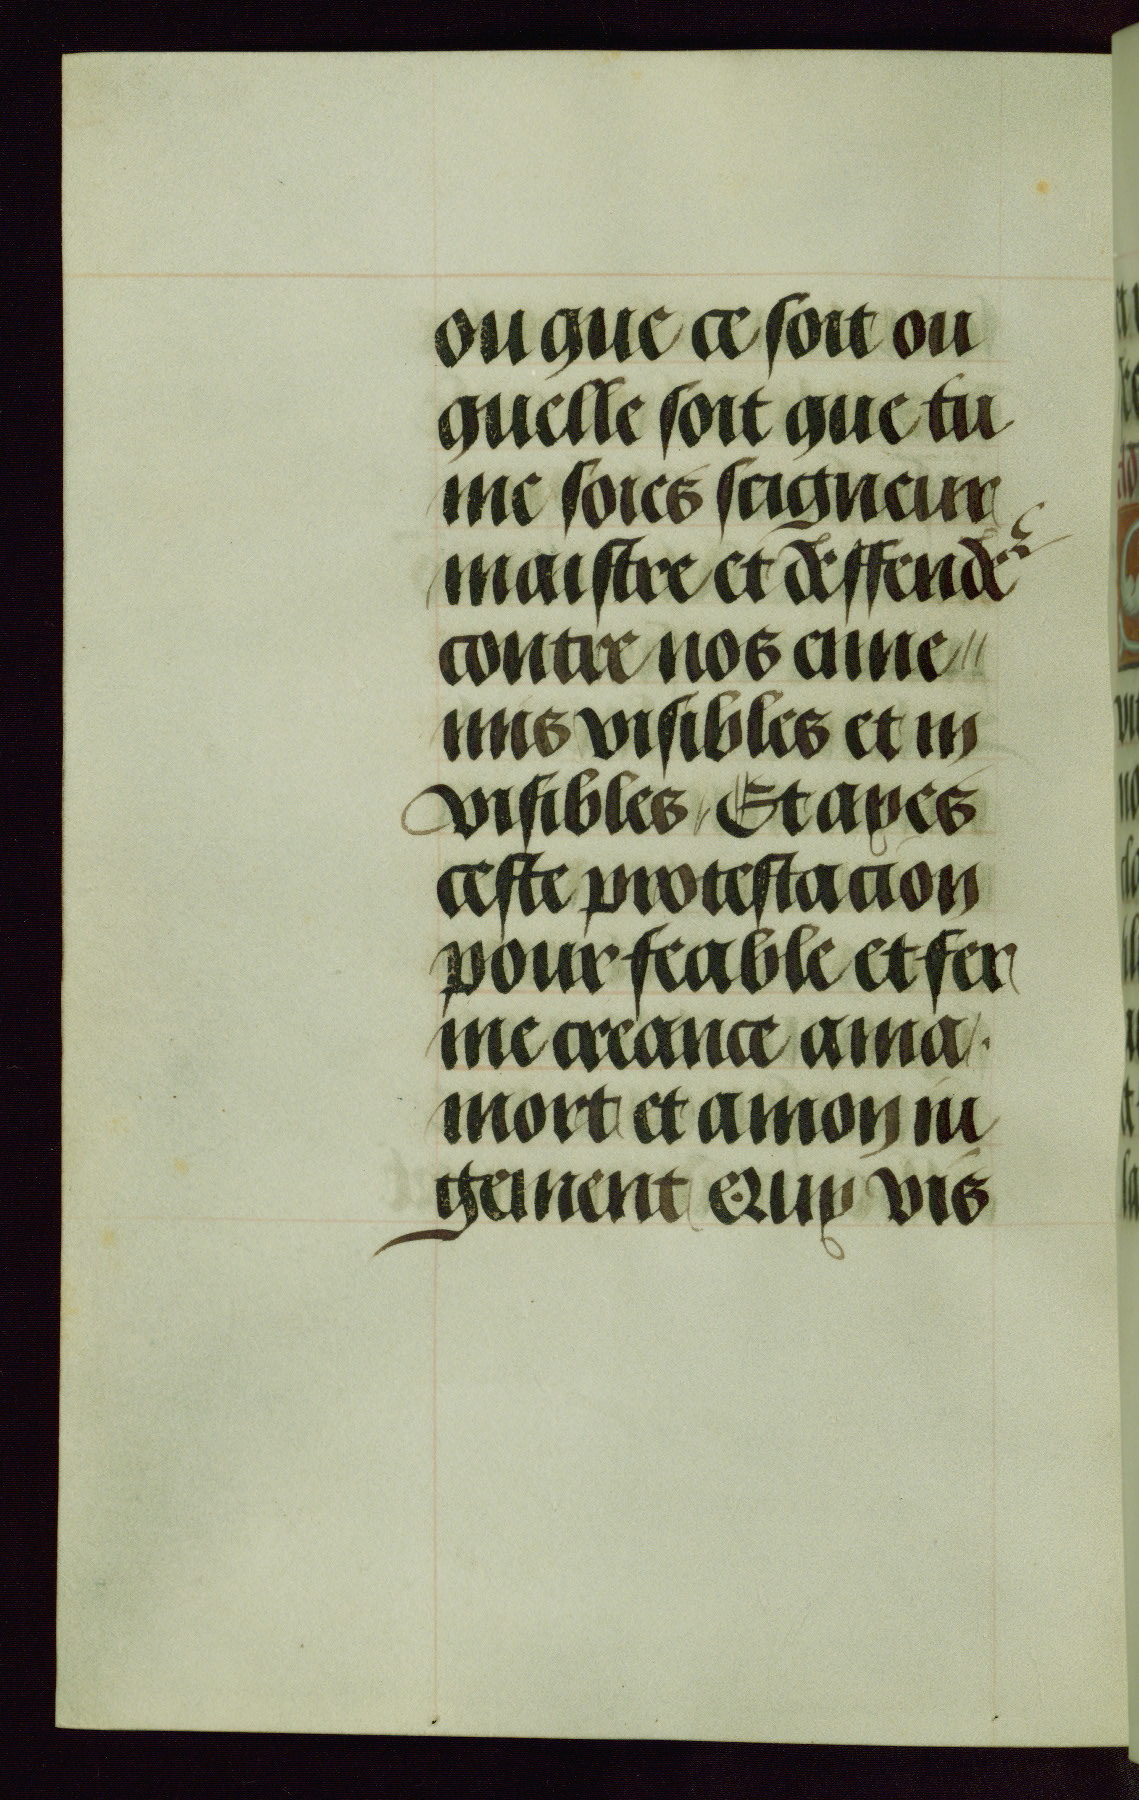 ou que ce soit ou
quelle soit que tu
me soies seigneur
maistre et deffendeᷣ
contre nos enne //
mis visibles et in
visibles / Et ayes
ceste protestacion
pour feable et fer
me creance a ma /.
mort et a mon iu
gement Quy vis